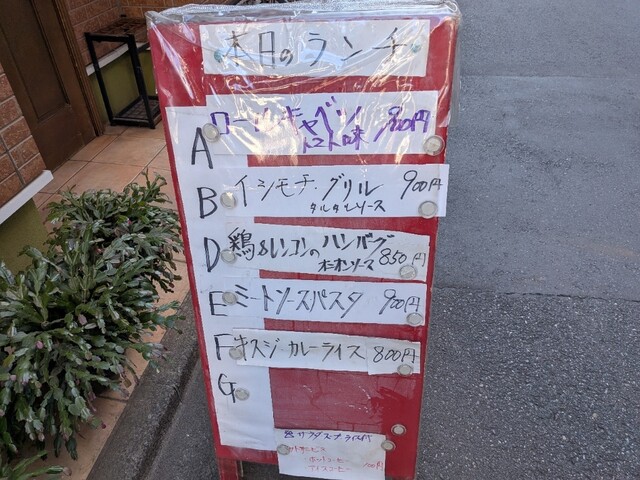 本日のランチ
A ロールキャベツ 900円
トマト味
B イシモチ・グリル 900円
タルタルソース
D 鶏&レンコンのハンバーグ
オニオンソース 850円
E ミートソースパスタ 900円
F 牛スジカレーライス 800円
G
サラダスープライス付
ホットコーヒー
アイスコーヒー
100円